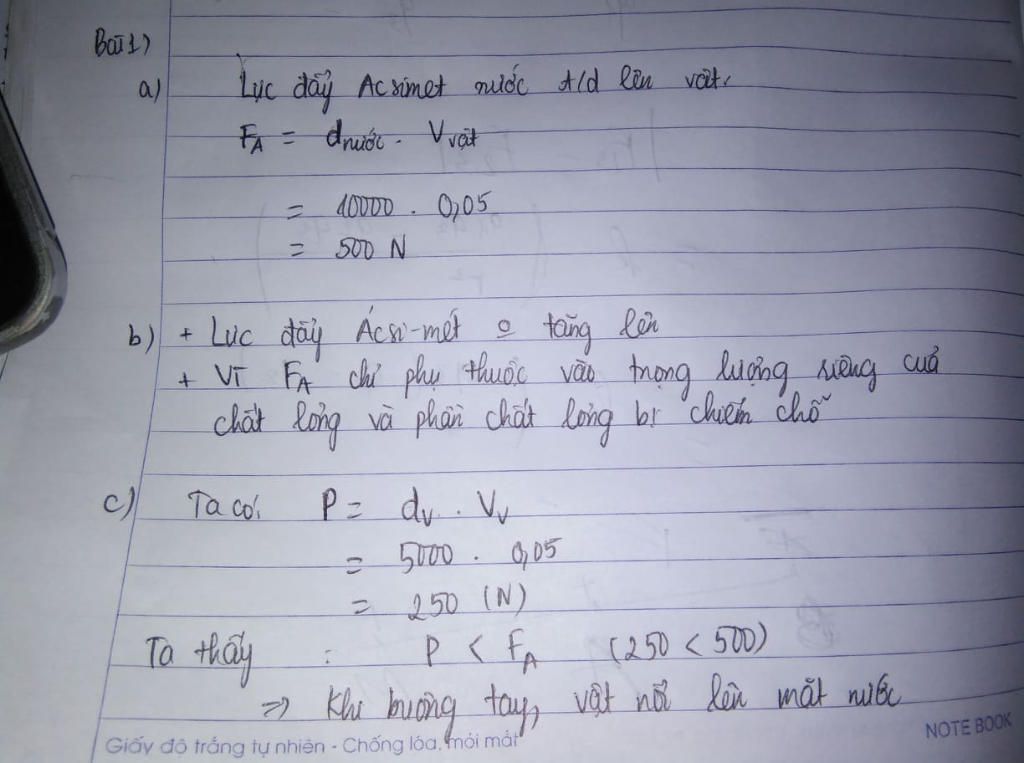 Bài 1)
a) Lực đẩy Acsimet nước t/d lên vật:
F_A = d nước . V vật
= 10000 . 0,05
= 500 N
b) + Lực đẩy Ácsi-mét o tăng lên
+ Vì F_A chỉ phụ thuộc vào trọng lượng riêng của
chất lỏng và phần chất lỏng bị chiếm chỗ
c) Ta có: P = d_v . V_v
= 5000 . 0,05
= 250 (N)
Ta thấy : P < F_A (250 < 500)
=> Khi buông tay, vật nổi lên mặt nước
Giấy độ trắng tự nhiên - Chống lóa, mỏi mắt
NOTE BOOK